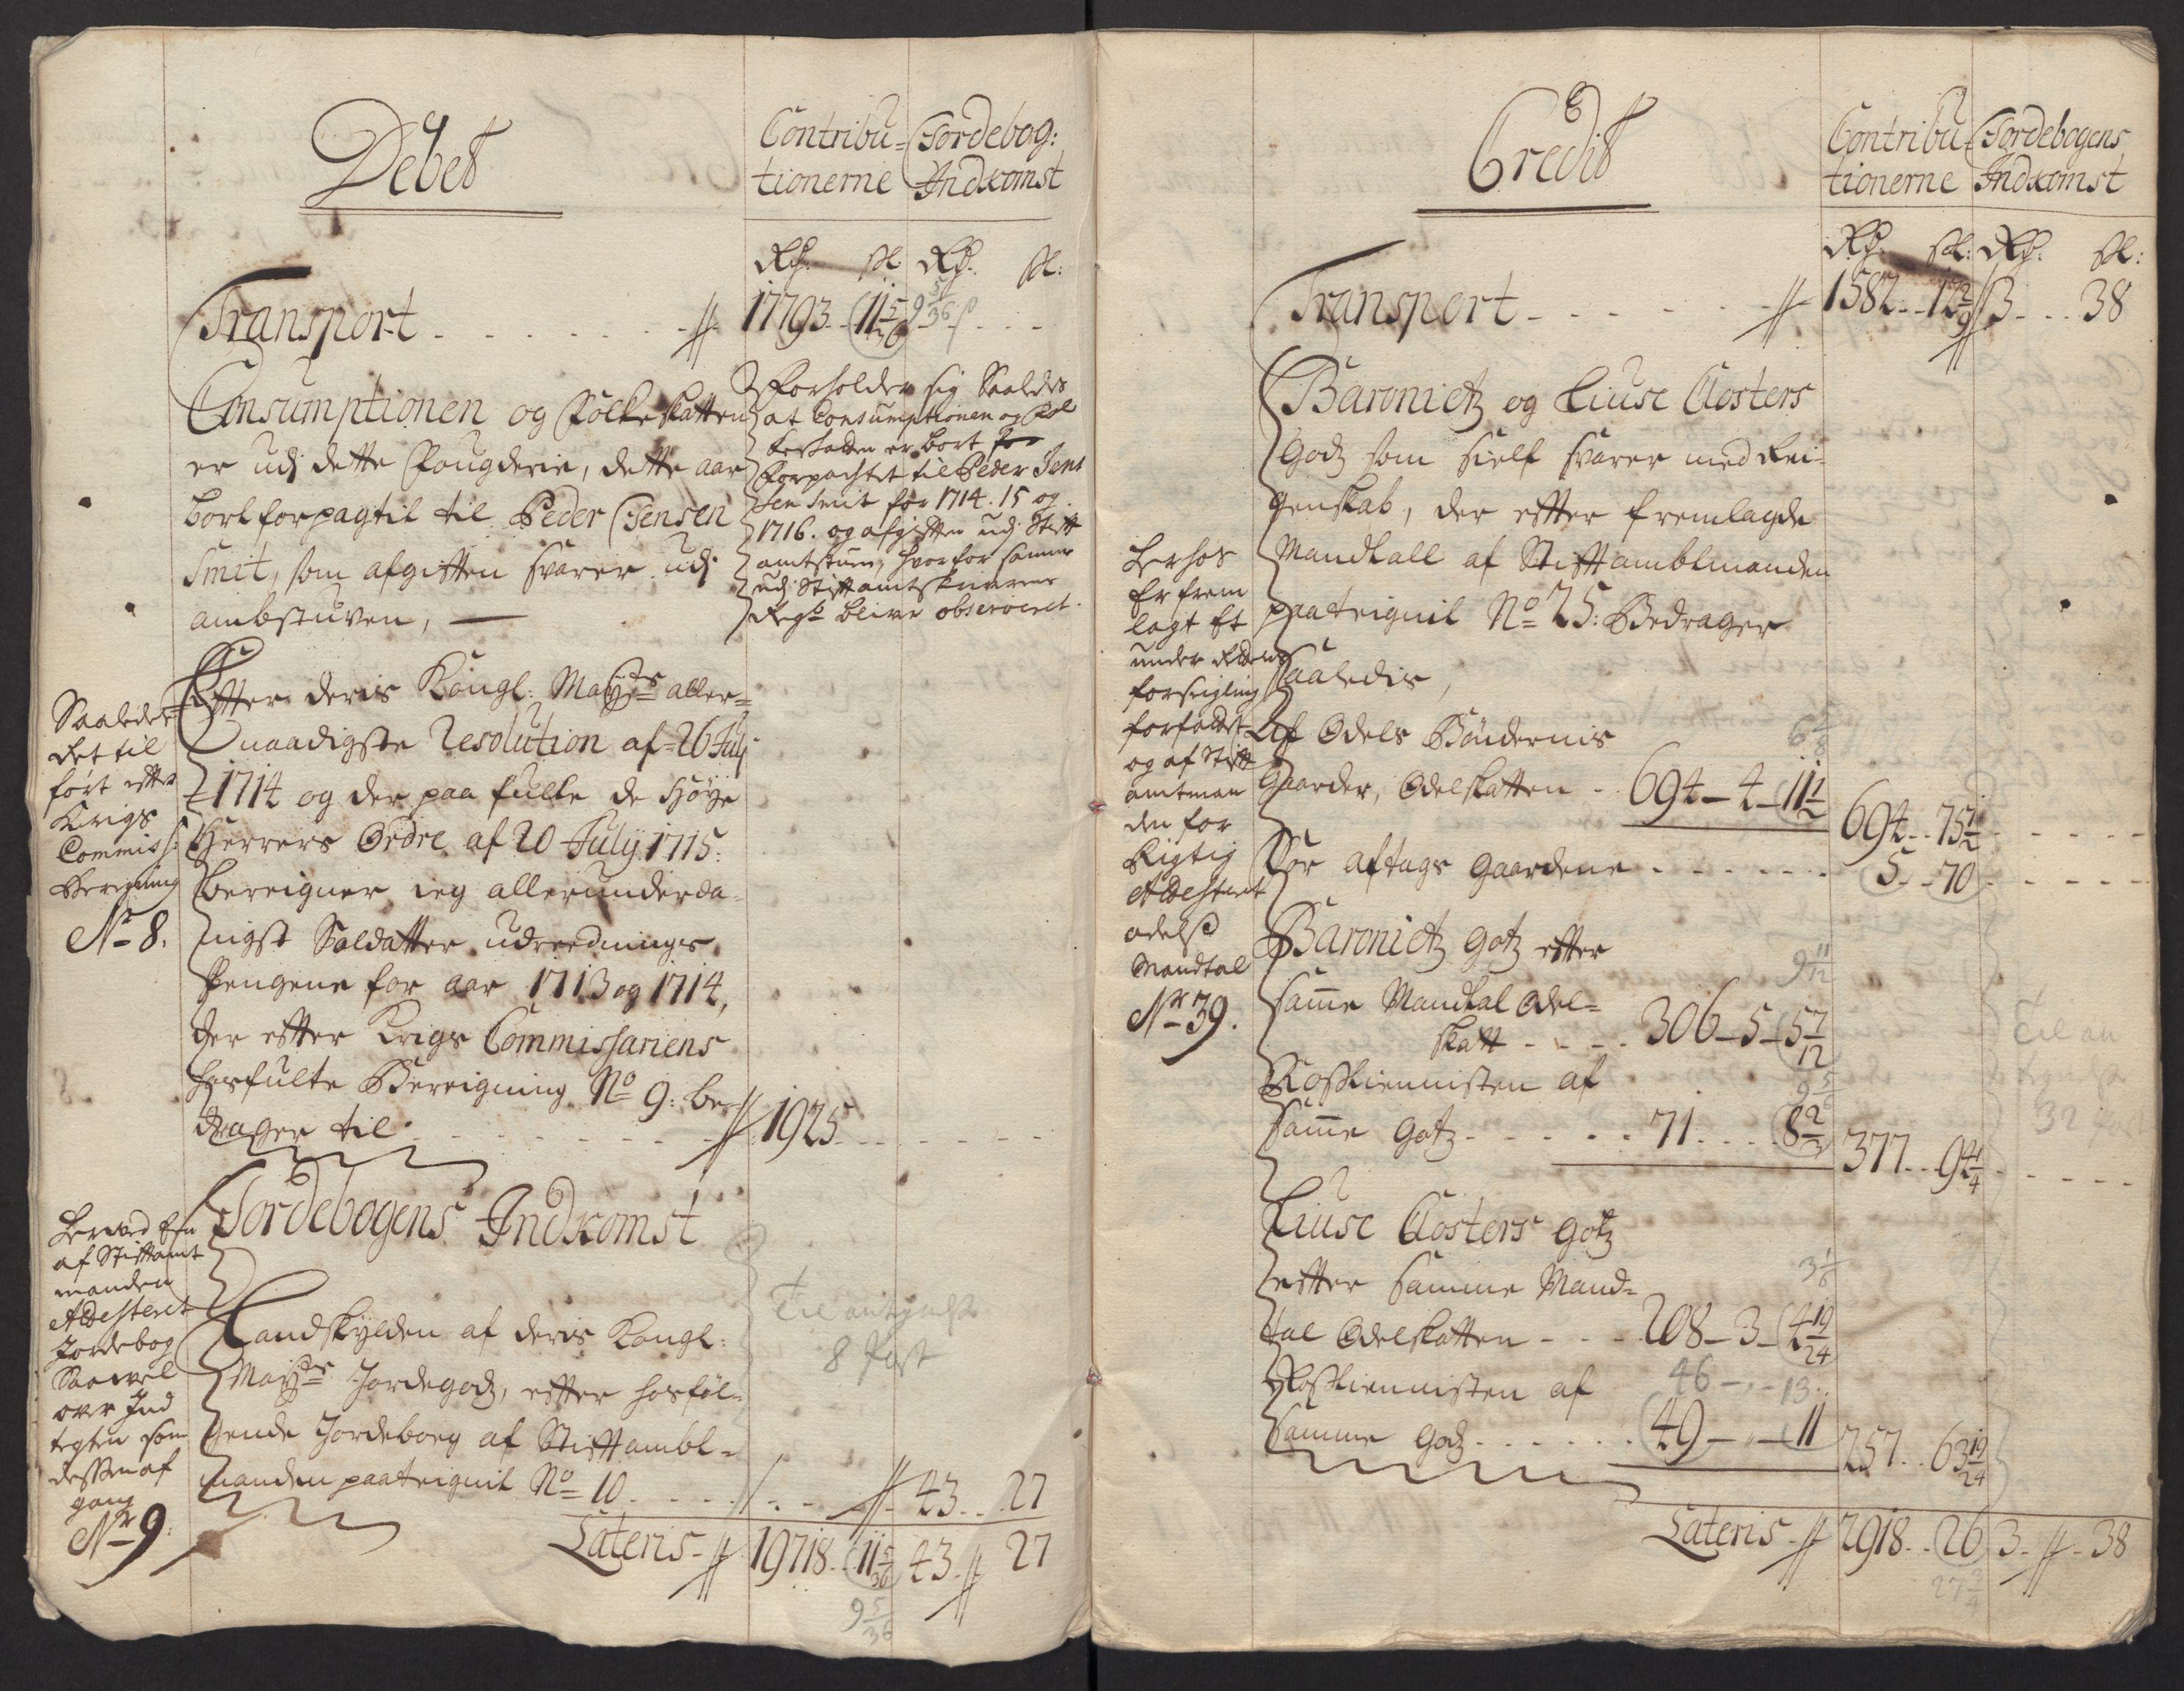 Debet
Contribu=
tionerne
Jordebog:
Indkomst
Rd. sk. Rd. sk:
Transport - - - - - - 17793 - 11 5/36
9 5/36
Consumptionen og Folkeskatten
er udj dette Fougderie, dette aar
bortforpagtit til Peder Jensen
Smit, som afgifften svarer udj
ambstuven,
Forholder sig Saaledes
at Consumptionen og Fol
keskatten er bort for
Forpachtet til Peder Jens
sen Smit for 1714. 15 og
1716. og afgifften udj Stifft
amtstuen, hvorfor samme
udj Stifftamtskrifverens
Regsk blive observeret.
Saaledes
Rettil
ført effter
Krigs
Commiss:
Beregning
No 8.
Effter deris Kongl: Mayts aller=
naadigste Resolution af 26 July
1714 og der paa fulte de Høye
Herrers Ordre af 20 July 1715:
bereigner ieg allerunderda=
nigst Soldatter udreednings
Pengene for aar 1713 og 1714,
der effter Krigs Commissariens
hosfulte Bereigning No 9: be=
drager til - - - - 1925 - - - -
Jordebogens Indkomst
Herved Een
af Stifftamt
manden
Attesteret
Jordebog
Saavel
over Ind
tegten som
dessen af
gang
No 9:
Landskylden af deris Kongl:
Mayts Jordegodz, effter hosføl=
gende Jordeboeg af Stifftambt=
manden paateignit No 10 - - - - 43 - - 27
Til antegnelse
8 Post
Lateris - 19718 - 11 5/36 43 - 27
9 5/36
Credit
Contribu=
tionerne
Jordebogens
Indkomst
Rd. sk: Rd. sk:
Transport - - - - - 1582 - 13 2/9 3 - - - 38
Baronietz og Liuse Closters
Godz som sielf svarer med Rei=
genskab, der effter fremlagde
Mandtall af Stifftambtmanden
paateignit No 25: Bedrager
Saaledis,
Herhos
Er frem
lagt Et
under Rettens
forseigling
forfattet
og af Stifft
amtman
den for
Rigtig
Attesteret
odels
Mandtal
No 39.
Af Odels Bøndernis
Gaarder, Odelskatten - 694 - 4 - 11 1/2
694 - - 75 1/2 - - - -
For aftags gaardene - - - - - 5 - - 70 - - - -
Baronietz Gotz effter
9 11/12
samme Mandtal Odel=
skatt - - - - 306 - 5 - 5 7/12
Rosstiennisten af
9 5/6
samme Gotz - - - - - 71 - - - 8 2/3
377 - - 94 1/4 - - - -
Til an
tegnelse
32 Post
Liuse Closters Gotz
effter samme Mand=
tal Odelskatten - - - 208 - 3 - 4 19/24
Rosstiennisten af
46 - - 13
samme Godz - - - - - 49 - - 11
257 - - 63 19/24
Lateris - 2918 - - 26 3 - 38
27 3/4